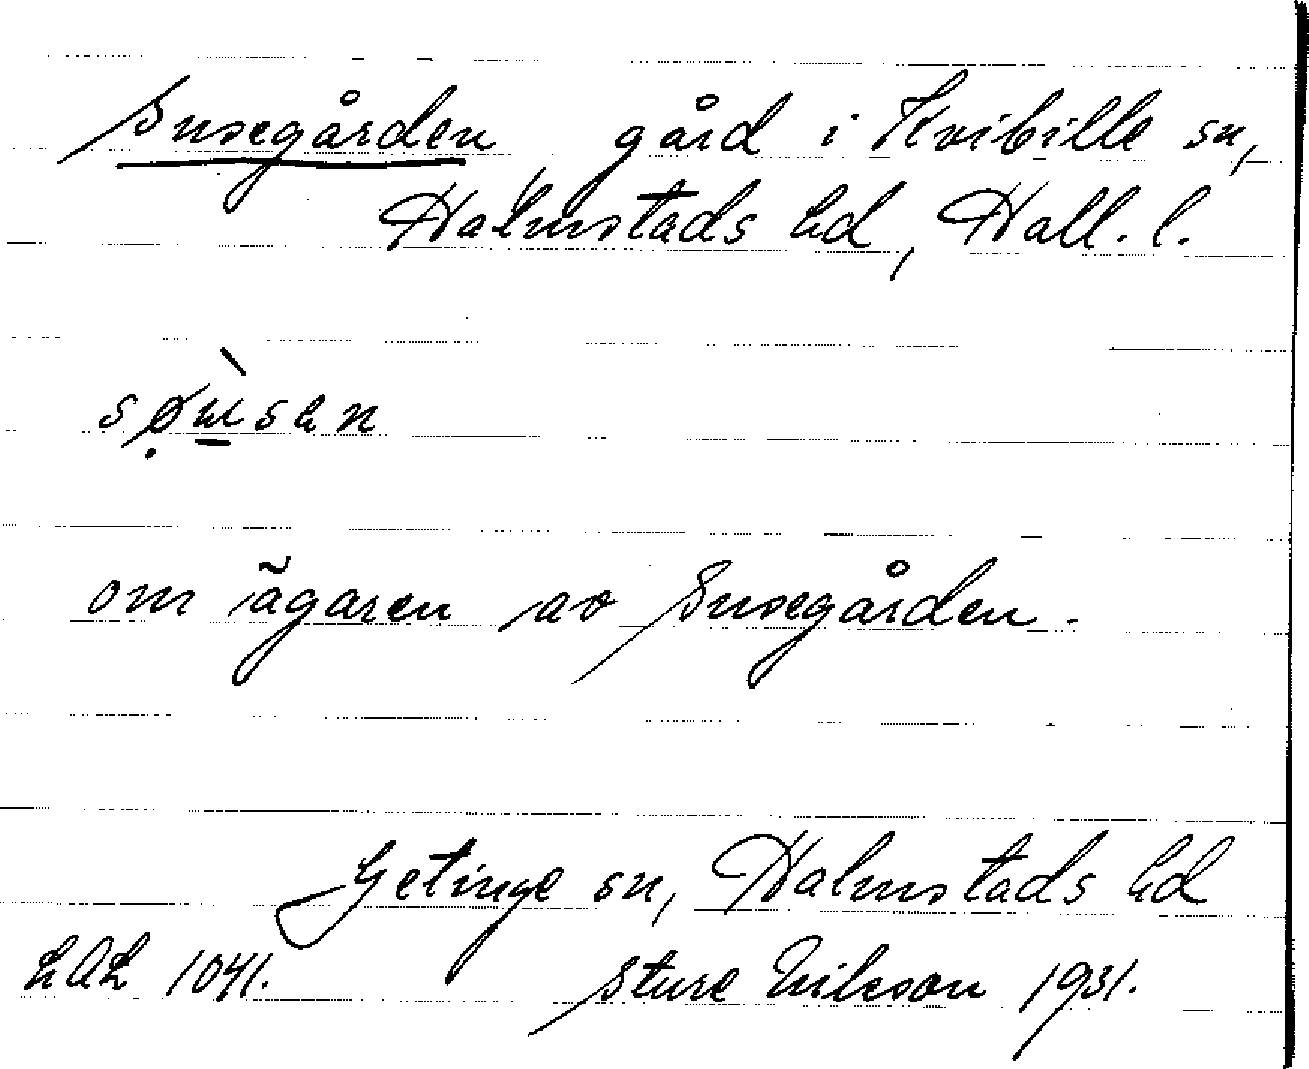 Susegården gård i Kvibille sn,
Halmstads hd, Hall. l.
om ägaren av Susegården.
Getinge sn, Halmstads hd
LAL 1041. Sture Nilsson 1931.